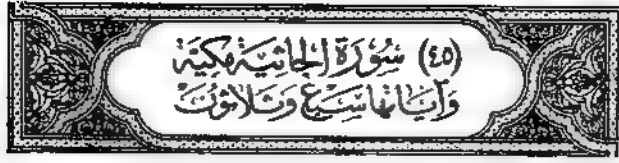 (٤٥) سُورَةُ الجَاثِيَةِ مَكِيَّة
وَآيَاتُهَا سَبْعٌ وَثَلَاثُونَ